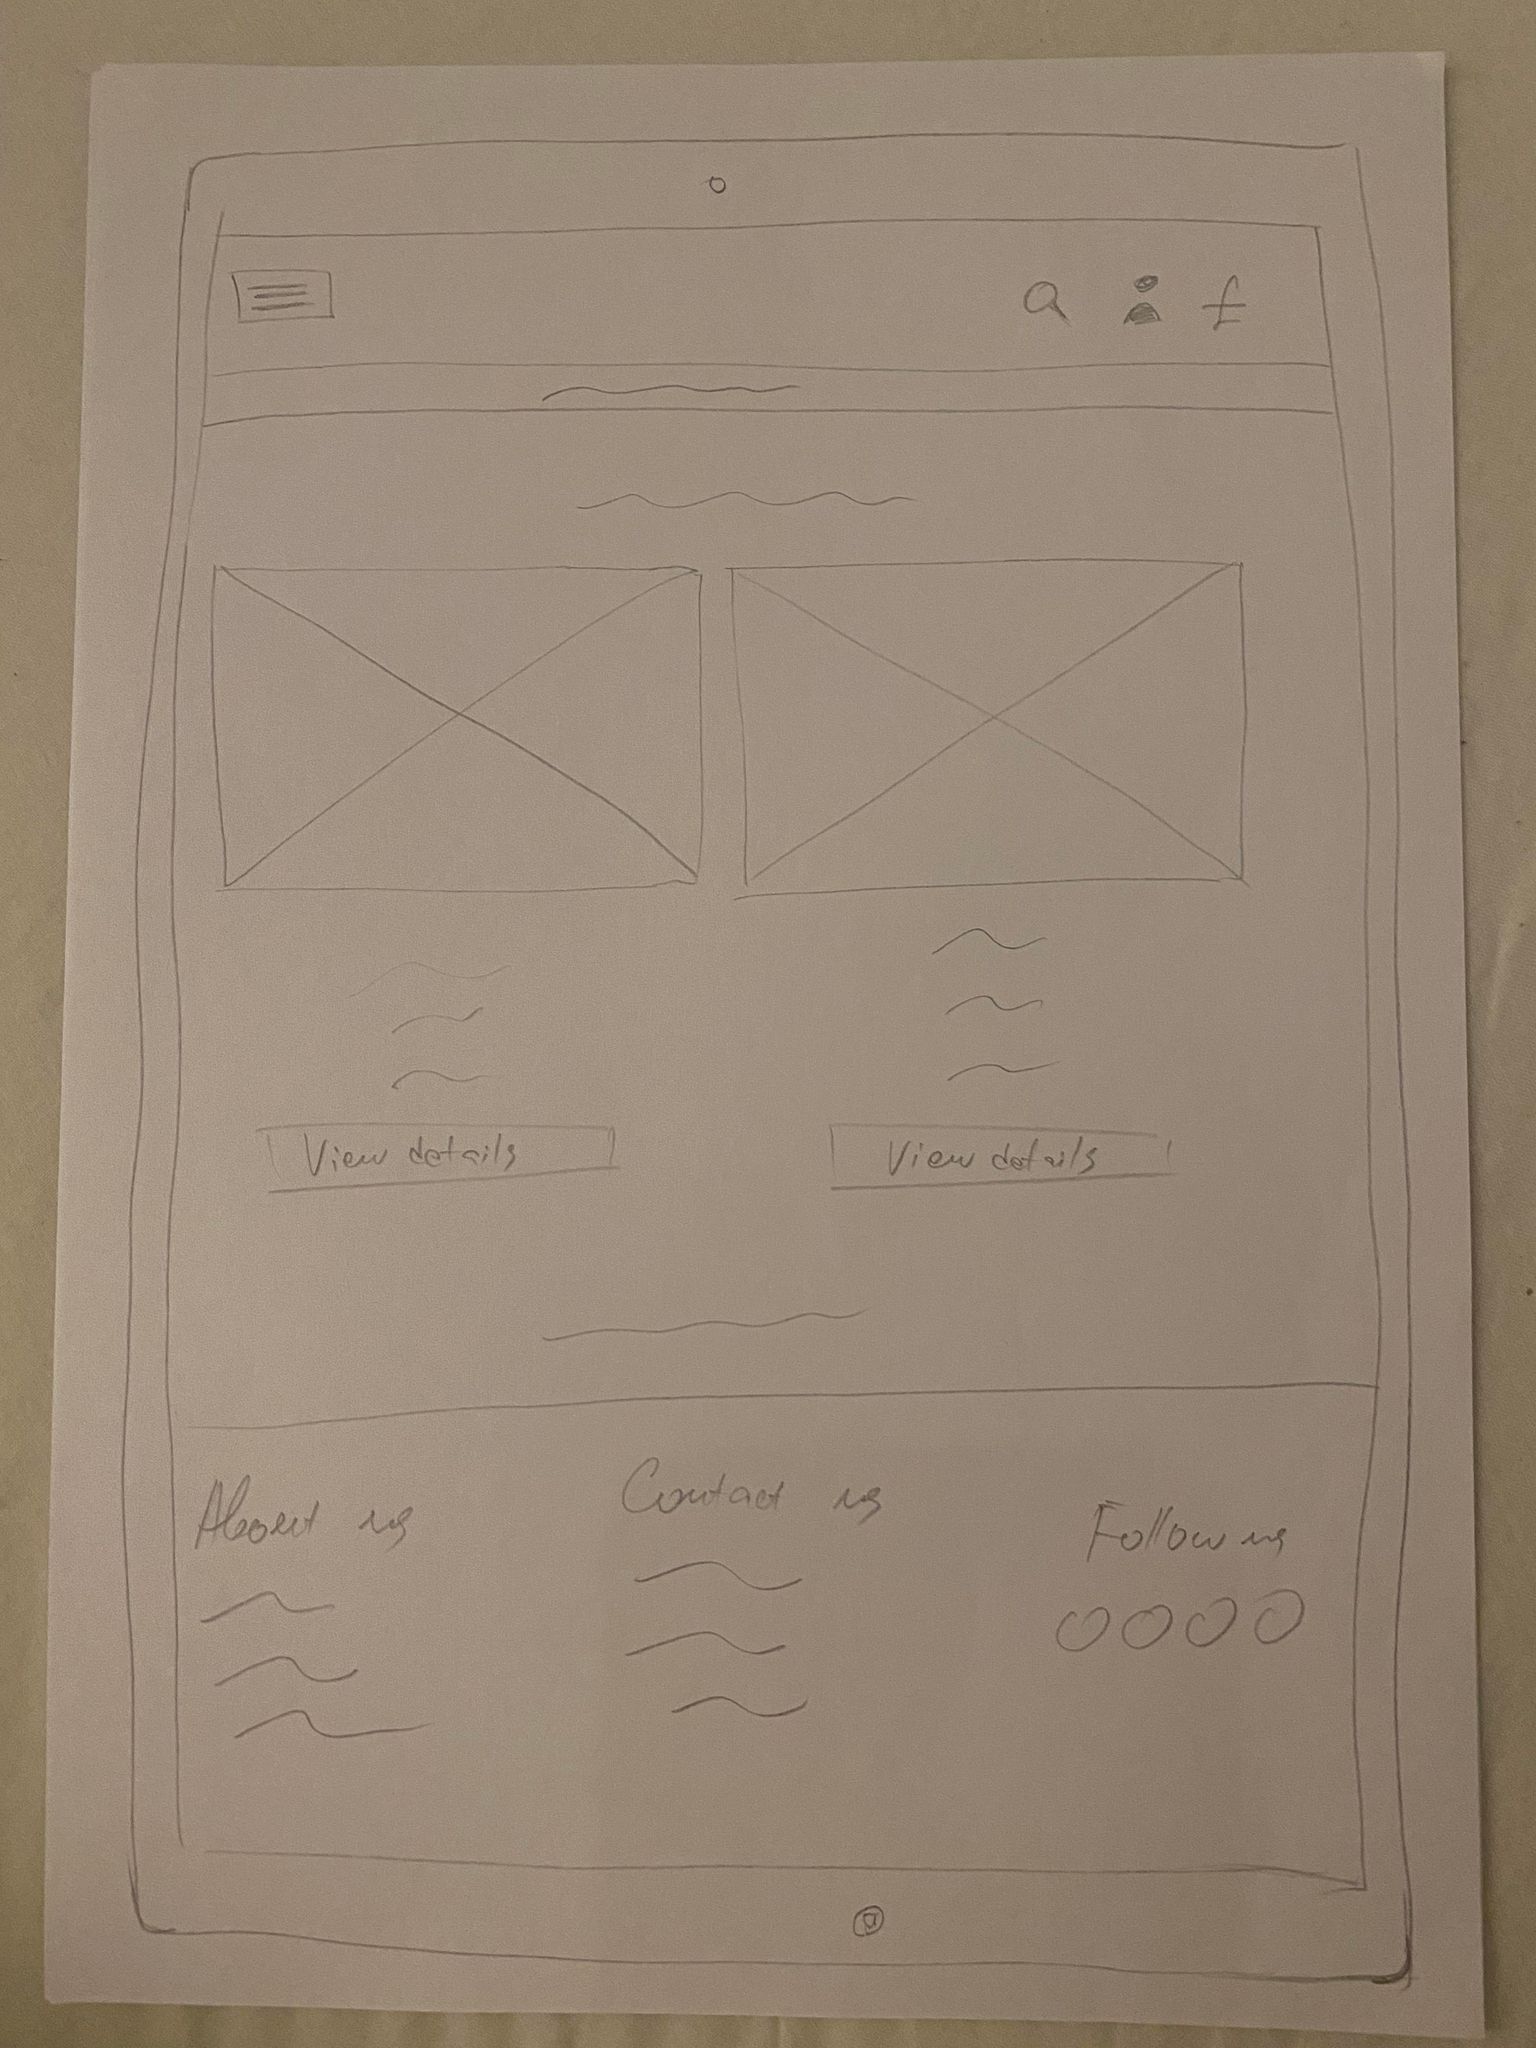 £
View details
View details
About us
Contact us
Follow us